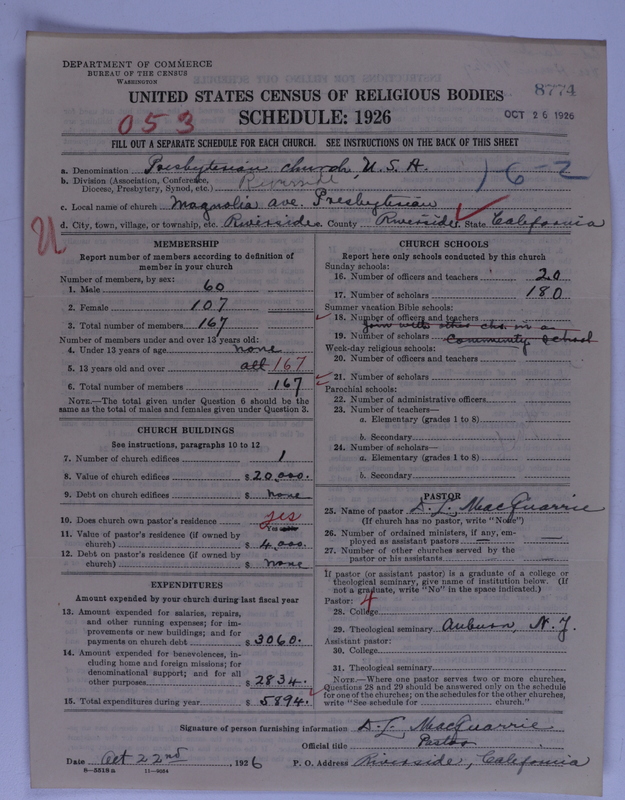 DEPARTMENT OF COMMERCE
BUREAU OF THE CENSUS
WASHINGTON
8774
UNITED STATES CENSUS OF RELIGIOUS BODIES
053
SCHEDULE: 1926
OCT 26 1926
FILL OUT A SEPARATE SCHEDULE FOR EACH CHURCH. SEE INSTRUCTIONS ON THE BACK OF THIS SHEET
a. Denomination Presbyterian church, U.S.A.
b. Division (Association, Conference, Diocese, Presbytery, Synod, etc.) Riverside
1-6-2
c. Local name of church Magnolia ave. Presbyterian
d. City, town, village, or township, etc. Riverside e. County Riverside f. State California
U
MEMBERSHIP
Report number of members according to definition of
member in your church
Number of members, by sex:
1. Male 60
2. Female 107
3. Total number of members 167
Number of members under and over 13 years old:
4. Under 13 years of age none
5. 13 years old and over all 167
6. Total number of members 167
NOTE.—The total given under Question 6 should be the
same as the total of males and females given under Question 3.
CHURCH BUILDINGS
See instructions, paragraphs 10 to 12
7. Number of church edifices 1
8. Value of church edifices $ 20,000.
9. Debt on church edifices $ none
10. Does church own pastor's residence yes
Yes or no
11. Value of pastor's residence (if owned by
church) $ 4,000.
12. Debt on pastor's residence (if owned by
church) $ none
EXPENDITURES
Amount expended by your church during last fiscal year
13. Amount expended for salaries, repairs,
and other running expenses; for im-
provements or new buildings; and for
payments on church debt $ 3060.
14. Amount expended for benevolences, in-
cluding home and foreign missions; for
denominational support; and for all
other purposes $ 2834.
15. Total expenditures during year $ 5894.
CHURCH SCHOOLS
Report here only schools conducted by this church
Sunday schools:
16. Number of officers and teachers 20
17. Number of scholars 180
Summer vacation Bible schools:
18. Number of officers and teachers
Join with other chs. in a
19. Number of scholars Community School
Week-day religious schools:
20. Number of officers and teachers
21. Number of scholars
Parochial schools:
22. Number of administrative officers
23. Number of teachers—
a. Elementary (grades 1 to 8)
b. Secondary
24. Number of scholars—
a. Elementary (grades 1 to 8)
b. Secondary
PASTOR
25. Name of pastor D. L. MacQuarrie
(If church has no pastor, write "None")
26. Number of ordained ministers, if any, em-
ployed as assistant pastors —
27. Number of other churches served by the
pastor or his assistants —
If pastor (or assistant pastor) is a graduate of a college or
theological seminary, give name of institution below. (If
not a graduate, write "No" in the space indicated.)
Pastor: 4
28. College
29. Theological seminary Auburn, N.Y.
Assistant pastor:
30. College
31. Theological seminary
NOTE.—Where one pastor serves two or more churches,
Questions 28 and 29 should be answered only on the schedule
for one of the churches; on the schedules for the other churches,
write "See schedule for church."
Signature of person furnishing information D. L. MacQuarrie
Official title Pastor
Date Oct 22nd, 1926 P. O. Address Riverside, California
8—5518a 11—9064